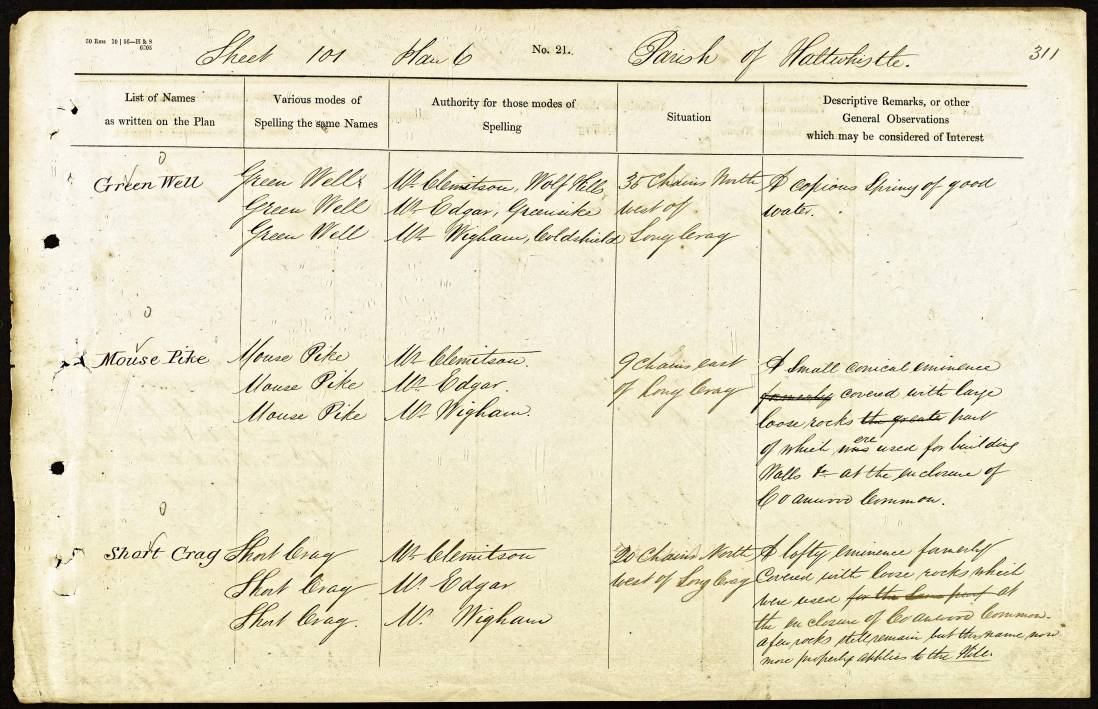 50 Rms 10 | 56—H & S
6205
Sheet 101 Plan 6 No. 21. Parish of Haltwhistle. 311
List of Names
as written on the Plan
Various modes of
Spelling the same Names
Authority for those modes of
Spelling
Situation
Descriptive Remarks, or other
General Observations
which may be considered of Interest
Green Well
Green Well
Green Well
Green Well
Mr. Clemitson, Wolf Hills
Mr. Edgar, Greensike
Mr. Wigham, Coldshield
35 Chains North
west of
Long Crag
A copious Spring of good
water.
Mouse Pike
Mouse Pike
Mouse Pike
Mouse Pike
Mr. Clemitson.
Mr. Edgar.
Mr. Wigham.
9 chains east
of Long Crag
A Small conical eminence
formerly covered with large
loose rocks the greater part
of which were used for building
Walls &c at the enclosure of
Coanwood Common.
Short Crag
Short Crag
Short Crag
Short Crag.
Mr. Clemitson
Mr. Edgar
Mr. Wigham
20 Chains North
west of Long Crag
A lofty eminence formerly
Covered with loose rocks which
were used for the same purp at
the enclosure of Coanwood Common.
a few rocks still remain but the name now
more properly applies to the Hill.